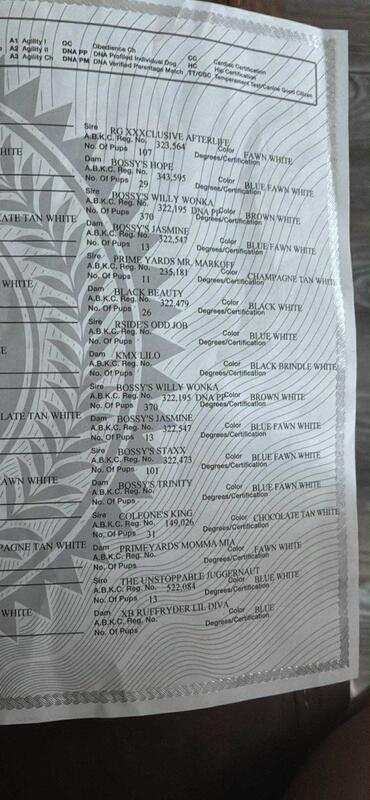 A1 Agility I OC Obedience Ch CC Cardiac Certification
A2 Agility II DNA PP DNA Profiled Individual Dog HC Hip Certification
A3 Agility Ch DNA PM DNA Verified Parentage Match TT/CGC Temperament Test/Canine Good Citizen
Sire RG XXXCLUSIVE AFTERLIFE
A.B.K.C. Reg. No. 323,564 Color FAWN WHITE
No. Of Pups 107 Degrees/Certification
HITE
Dam BOSSY'S HOPE
A.B.K.C. Reg. No. 343,595 Color BLUE FAWN WHITE
No. Of Pups 29 Degrees/Certification
Sire BOSSY'S WILLY WONKA
A.B.K.C. Reg. No. 322,195 DNA PP Color BROWN WHITE
No. Of Pups 370 Degrees/Certification
ATE TAN WHITE
Dam BOSSY'S JASMINE
A.B.K.C. Reg. No. 322,547 Color BLUE FAWN WHITE
No. Of Pups 13 Degrees/Certification
Sire PRIME YARDS MR. MARKOFF
A.B.K.C. Reg. No. 235,181 Color CHAMPAGNE TAN WHITE
No. Of Pups 11 Degrees/Certification
WHITE
Dam BLACK BEAUTY
A.B.K.C. Reg. No. 322,479 Color BLACK WHITE
No. Of Pups 26 Degrees/Certification
Sire RSIDE'S ODD JOB
A.B.K.C. Reg. No. Color BLUE WHITE
No. Of Pups Degrees/Certification
E
Dam KMX LILO
A.B.K.C. Reg. No. Color BLACK BRINDLE WHITE
No. Of Pups Degrees/Certification
Sire BOSSY'S WILLY WONKA
A.B.K.C. Reg. No. 322,195 DNA PP Color BROWN WHITE
No. Of Pups 370 Degrees/Certification
LATE TAN WHITE
Dam BOSSY'S JASMINE
A.B.K.C. Reg. No. 322,547 Color BLUE FAWN WHITE
No. Of Pups 13 Degrees/Certification
Sire BOSSY'S STAXX
A.B.K.C. Reg. No. 322,473 Color BLUE FAWN WHITE
No. Of Pups 101 Degrees/Certification
AWN WHITE
Dam BOSSY'S TRINITY
A.B.K.C. Reg. No. Color BLUE FAWN WHITE
No. Of Pups Degrees/Certification
Sire COLEONE'S KING
A.B.K.C. Reg. No. 149,026 Color CHOCOLATE TAN WHITE
No. Of Pups 31 Degrees/Certification
PAGNE TAN WHITE
Dam PRIMEYARDS MOMMA MIA
A.B.K.C. Reg. No. Color FAWN WHITE
No. Of Pups Degrees/Certification
Sire THE UNSTOPPABLE JUGGERNAUT
A.B.K.C. Reg. No. 522,084 Color BLUE WHITE
No. Of Pups 13 Degrees/Certification
WHITE
Dam XB RUFFRYDER LIL DIVA
A.B.K.C. Reg. No. Color BLUE
No. Of Pups Degrees/Certification